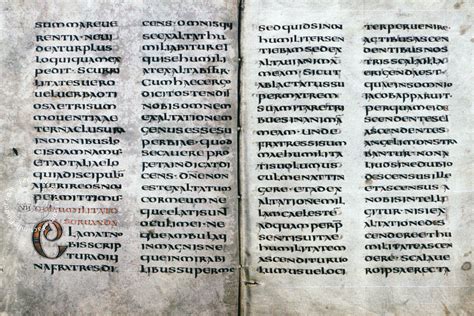 SUMMAREUE
RENTIANEUI
DEATURPLUS
LOQUIQUAMEX
PEDIT·SCURRI
LITATESUERO
UELUERBAOTI
OSAETRISUM
MOUENTIAAE
TERNACLUSURA
INOMNIBUSLO
CISDAMNAM
ETADTALIAELO
QUIADISCIPUL
APERIREOSNON
PERMITTIMUS
DEHUMILITATE
SERUANDA
CLAMATNO
BISSCRIP
TURADIUI
NAFRATRESDI
CENS·OMNISQUI
SEEXALTATHU
MILIABITURET
QUISEHUMILI
ATEXALTABITUR
CUMHAECERGO
DICITOSTENDI
NOBISOMNEM
EXALTATIONEM
GENUSESSESU
PERBIAE·QUOD
SECAUEREPRO
PFETAINDICAT
DICENS·DNENON
ESTEXALTATUM
CORMEUMNE
QUEELATISUNT
OCULIMEINE
QUEAMBULAUI
INMAGNISNE
QUEINMIRABI
LIBUSSUPERME
SEDQUIDSINON
HUMILITERSEN
TIEBAMSEDEX
ALTAUIANIMAM
MEAM·SICUT
ABLACTATUSSU
PERMATREM
SUAMITARETRI
BUESINANIMAM
MEAM·UNDE
FRATRESSISUM
MAEHUMILITA
TISUOLUMUS
CULMENATTIN
GEREETADEX
ALTATIONEMIL
LAMCAELESTE
ADQUAMPERP
SENTISUITAE
HUMILITATEM
ASCENDITUR
LUMUSUELOCI
TERPERUENIRE
ACTIBUSNOS
TRISASCENDEN
TIBUSSCALAILLA
ERIGENDAEST
QUEINSOMNIO
IACOBAPPARUIT
PERQUAMEI
DISCENDENTES
ETASCENDENTES
ANGELIMONS
TRABANTUR·NON
ALIUDSINEDU
BIODISCENSUS
ILLEETASCENSUSA
NOBISINTELLE
GITUR·NISIEX
ALTATIONEDES
CENDEREETHU
MILITATEASCEN
DERE·SCALAUE
ROIPSAERECTA